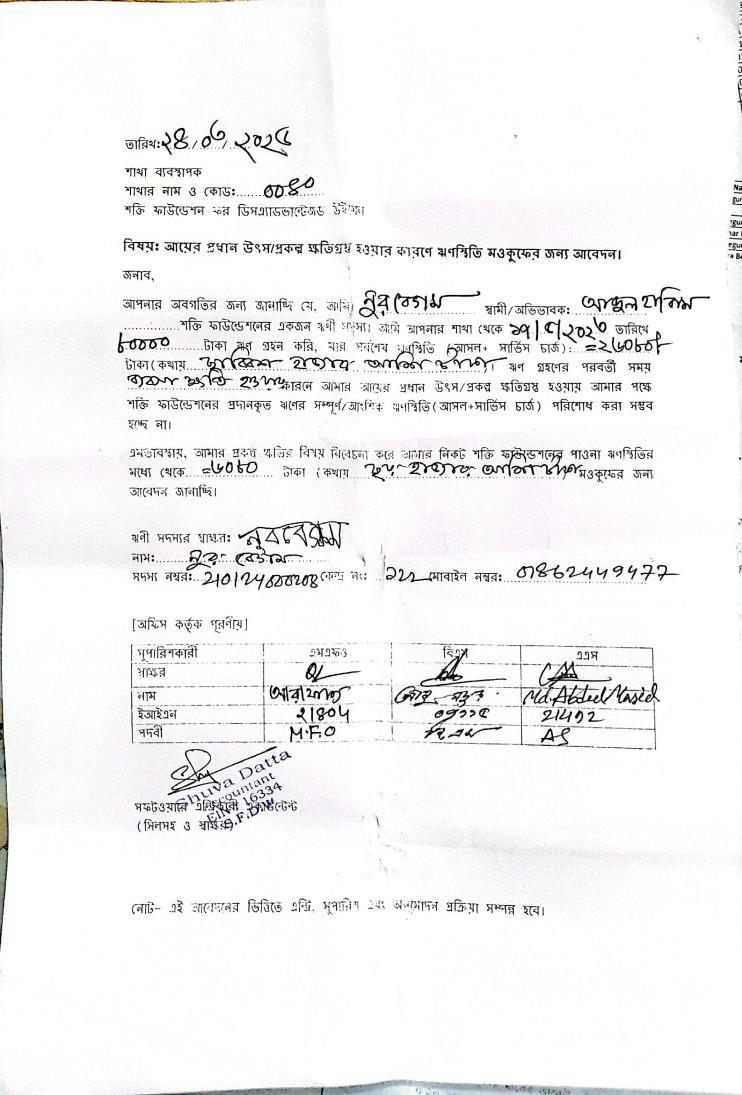 তারিখ: ২৪/০৩/২০২৫
শাখা ব্যবস্থাপক
শাখার নাম ও কোড: ০০৪০
শক্তি ফাউন্ডেশন ফর ডিসএ্যাডভান্টেজড উইমেন।
বিষয়ঃ আয়ের প্রধান উৎস/প্রকল্প ক্ষতিগ্রস্থ হওয়ার কারণে ঋণস্থিতি মওকুফের জন্য আবেদন।
জনাব,
আপনার অবগতির জন্য জানাচ্ছি যে, আমি নুর বেগম স্বামী/অভিভাবক: আব্দুল হাকিম
শক্তি ফাউন্ডেশনের একজন ঋণী সদস্য। আমি আপনার শাখা থেকে তারিখে
৮০০০০ টাকা ঋণ গ্রহন করি, যার সর্বশেষ ঋণস্থিতি (আসল+ সার্ভিস চার্জ): =২৬০৮০৲
টাকা(কথায় ছাব্বিশ হাজার আশি টাকা) ঋণ গ্রহণের পরবর্তী সময়
ব্যবসা ক্ষতি হওয়ার কারনে আমার আয়ের প্রধান উৎস/প্রকল্প ক্ষতিগ্রস্থ হওয়ায় আমার পক্ষে
শক্তি ফাউন্ডেশনের প্রদানকৃত ঋণের সম্পূর্ণ/আংশিক ঋণস্থিতি(আসল+সার্ভিস চার্জ) পরিশোধ করা সম্ভব
হচ্ছে না।
এমতাবস্থায়, আমার প্রকল্প ক্ষতির বিষয় বিবেচনা করে আমার নিকট শক্তি ফাউন্ডেশনের পাওনা ঋণস্থিতির
মধ্যে থেকে =৬০৮০ টাকা (কথায় ছয় হাজার আশি টাকা মওকুফের জন্য
আবেদন জানাচ্ছি।
ঋণী সদস্যর স্বাক্ষর: নুর বেগম
নাম: নুর বেগম
সদস্য নম্বর: কেন্দ্র নং: ১২২ মোবাইল নম্বর: 01862449477
[অফিস কর্তৃক পূরণীয়]
সুপারিশকারী এমএফও বিএম এএস
স্বাক্ষর
নাম আরাফাত Md. Abdul Masid
ইআইএন 21804 ০৭১১৫ 21492
পদবী M.F.O বি এম AS
Shuva Datta
Accountant
EIN 16334
S.F.D.W
সফটওয়ার এন্ট্রিকারী একাউন্টেন্ট
(সিলসহ ও স্বাক্ষর)
নোট- এই আবেদনের ভিত্তিতে এন্ট্রি, সুপারিশ এবং অনুমোদন প্রক্রিয়া সম্পন্ন হবে।